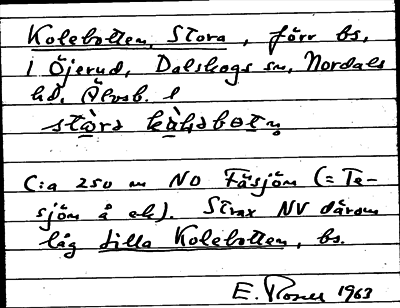 Kolebotten, Stora, förr bs,
i Öjerud, Dalskogs sn, Nordals
hd, Älvsb. l
C:a 250 m NO Fäsjön (= Te-
sjön å ek). Strax NV därom
låg Lilla Kolebotten, bs.
E. Rosell 1963